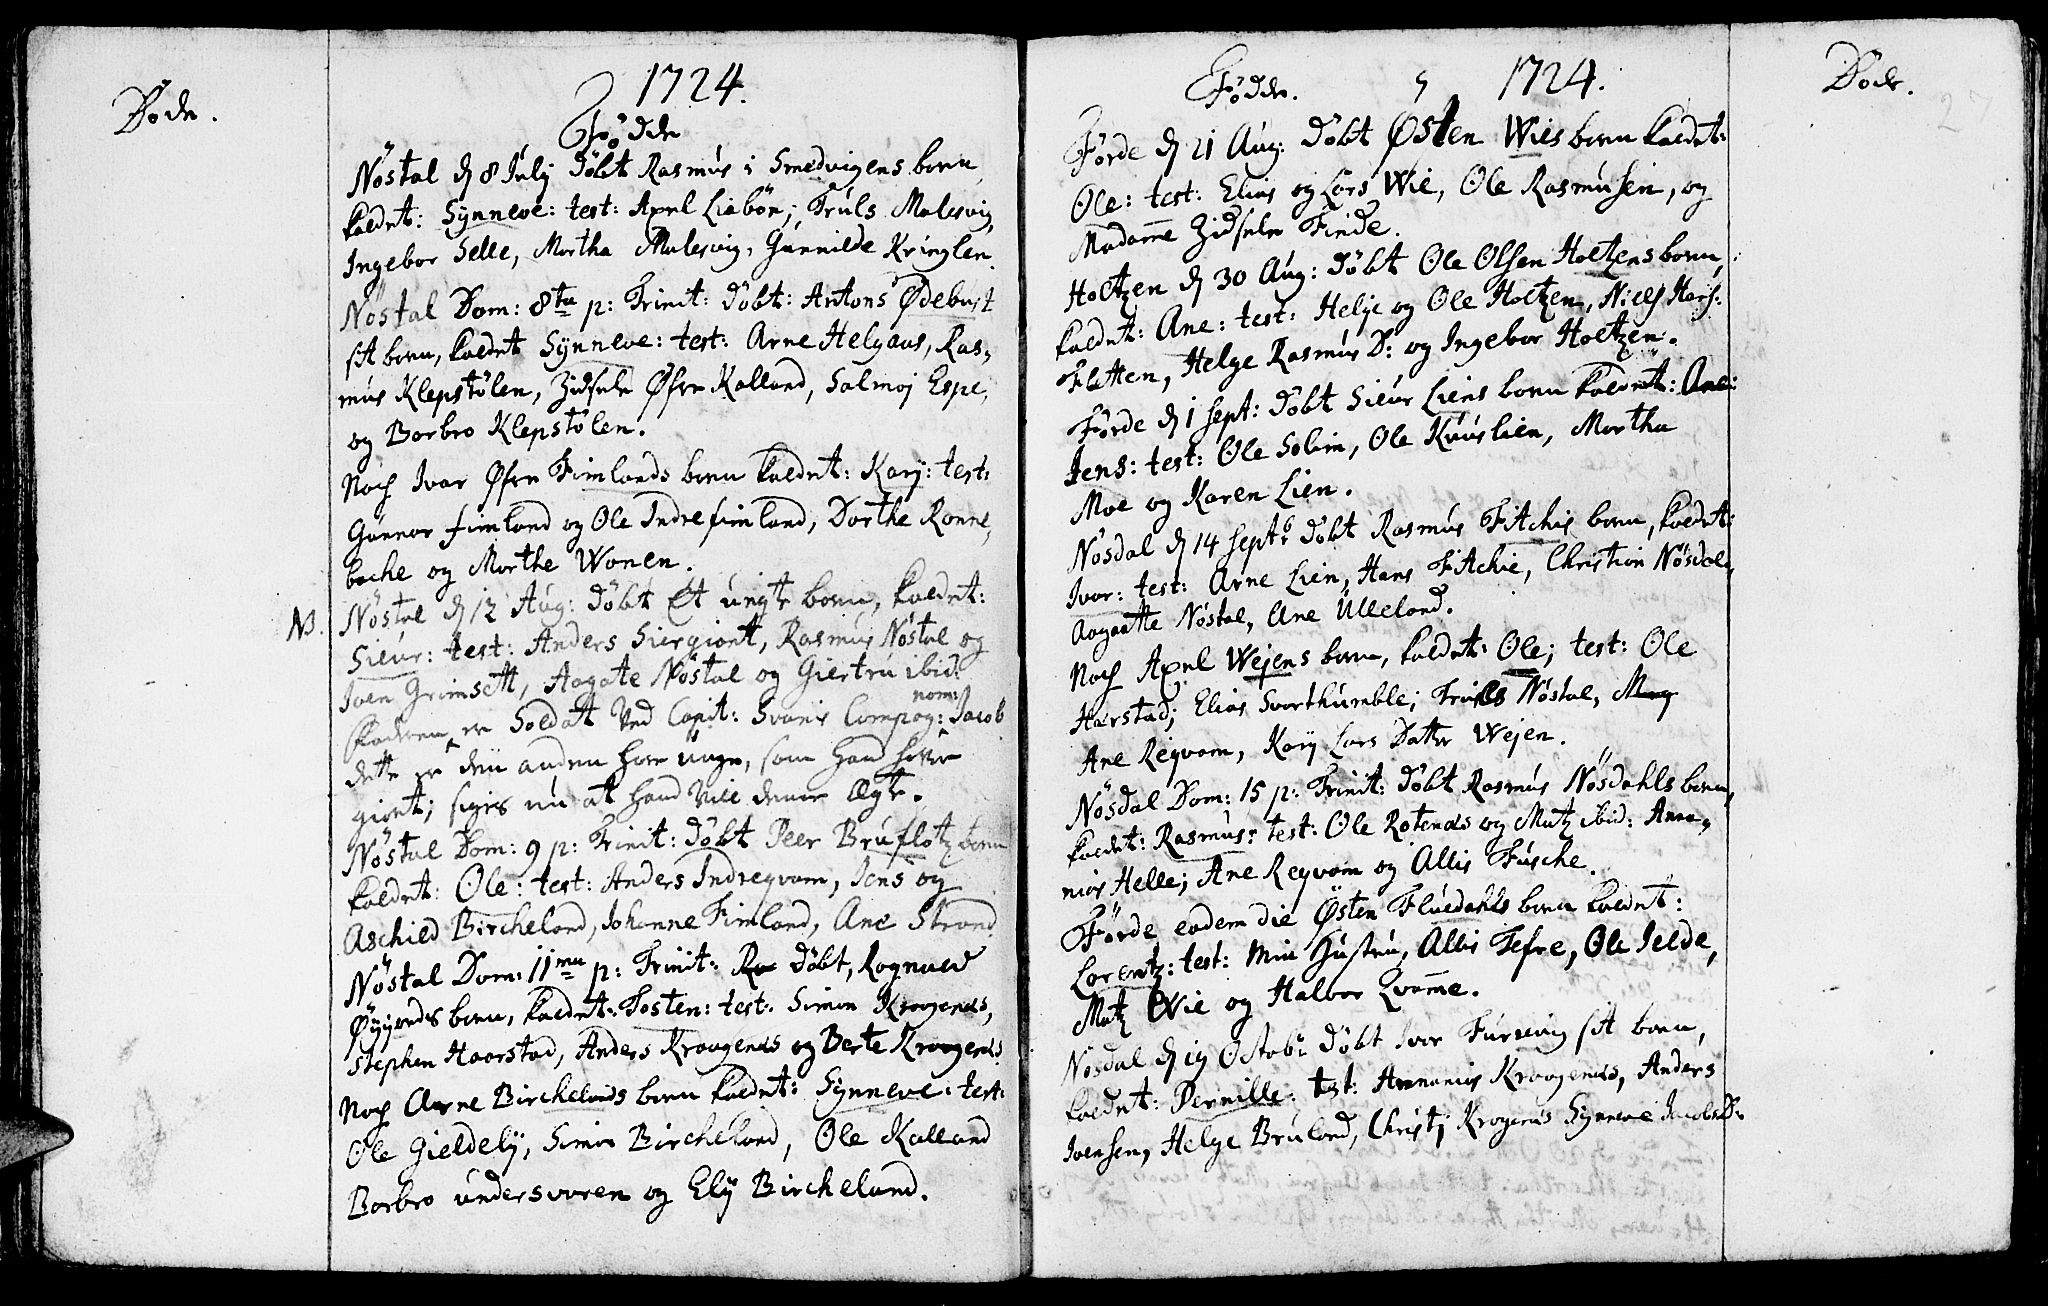 Døde.
1724.
Fødde
Nøstal d 8 Julij Døbt Rasmus i Smedvigens barn
kaldet: Synneve: test: Axel Liabøn; Truls Malesvig,
Ingebor Selle, Martha Malesvig, Gunnilde Kringlen.
Nøstal Dom: 8tu p: Trinit: Døbt: Antons Ødebust
sit barn, kaldet Synneve: test: Arne Helgaas, Ras,
mus Klepstølen, Zidsele Øfre Kalland, Salmoj Espe,
og Barbro Klepstølen.
Noch Ivar Øfre Fimlands barn kaldet: Karj: test:
Gunnar fimland og Ole Indrefimland, Dorthe Ronne,
bache og Marthe Wonen.
NB.
Nøstal d 12 Aug: Døbt Et uægte barn, kaldet:
Sieur: test: Anders Siergiont, Rasmus Nøstal og
Joen Grimsett, Aagate Nøstal og Giertru ibid:
faderen er Soldat Ved Capit: Svanis Compag: nom: Jacob
dette er den anden hore unge, som hand hafver
giort; siges nu at hand vill denne Ægte.
Nøstal Dom: 9 p: Trinit: Døbt Peer Bruflotz barn
kaldet: Ole: test: Anders Indreqvam, Jens og
Aschild Bircheland, Johanne Fimland, Ane Strand
Nøstal Dom: 11mu p: Trinit: Ra Døbt, Rognald
Øygards barn, kaldet: Tosten: test: Simon Kraagenæs,
Stephen Haarstad, Anders Kraagenæs og Berte Kraagenæs
Noch Aarne Birchelands barn kaldet: Synneve: test:
Ole Gieldely, Simon Bircheland, Ole Kalland
Barbro undersaaren og Ely Bircheland.
Fødde. 1724.
Døde.
27
Førde d 21 Aug: Døbt Østen Wies barn kaldet:
Ole: test: Elias og Lars Wie, Ole Rasmusen, og
Madame Zidsele Finde.
Holtzen d 30 Aug: Døbt Ole Olsen Holtzens barn,
kaldet: Ane: test: Helje og Ole Holtzen, Niels Hars:
Flatten, Helge Rasmus D: og Ingebor Holtzen.
Førde d 1 Sept: Døbt Sieur Liens barn kaldet: Ane:
Jens: test: Ole Solim, Ole Kuuslien, Martha
Moe og Karen Lien.
Nøsdal d 14 Septr Døbt Rasmus Fitchis barn, kaldet:
Ivar: test: Arne Lien, Hans Fitchie, Christian Nøsdal,
Aagaatte Nøstal, Ane Ulleland.
Noch Axel Wejens barn, kaldet: Ole; test: Ole
Harstad; Elias Svorthumble; Truls Nøstal, Mag
Ane Reqvam, Kary Lars Datter Wejen.
Nøsdal Dom: 15 p: Trinit: Døbt Rasmus Nøsdahls barn,
kaldet: Rasmus: test: Ole Rotenæs og Matz ibid: Anna,
nias Helle; Ane Reqvam og Allis Fusche.
Førde eodem die Østen Fluedahls barn kaldet:
Lorentz: test: min Hustru, Allis Tefre, Ole Jelde,
Matz Wie og Halvor Qvamme.
Nøsdal d 19 Octobr Døbt Ivar Furevig sit barn,
kaldet: Pernille: test: Annanias Kraagenæs, Anders
Joensen, Helge Bruland, Christj Kragenæs Synneve Jacobs D: